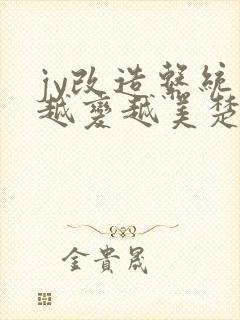 jy改造系統
越變越美楚
金貴晟